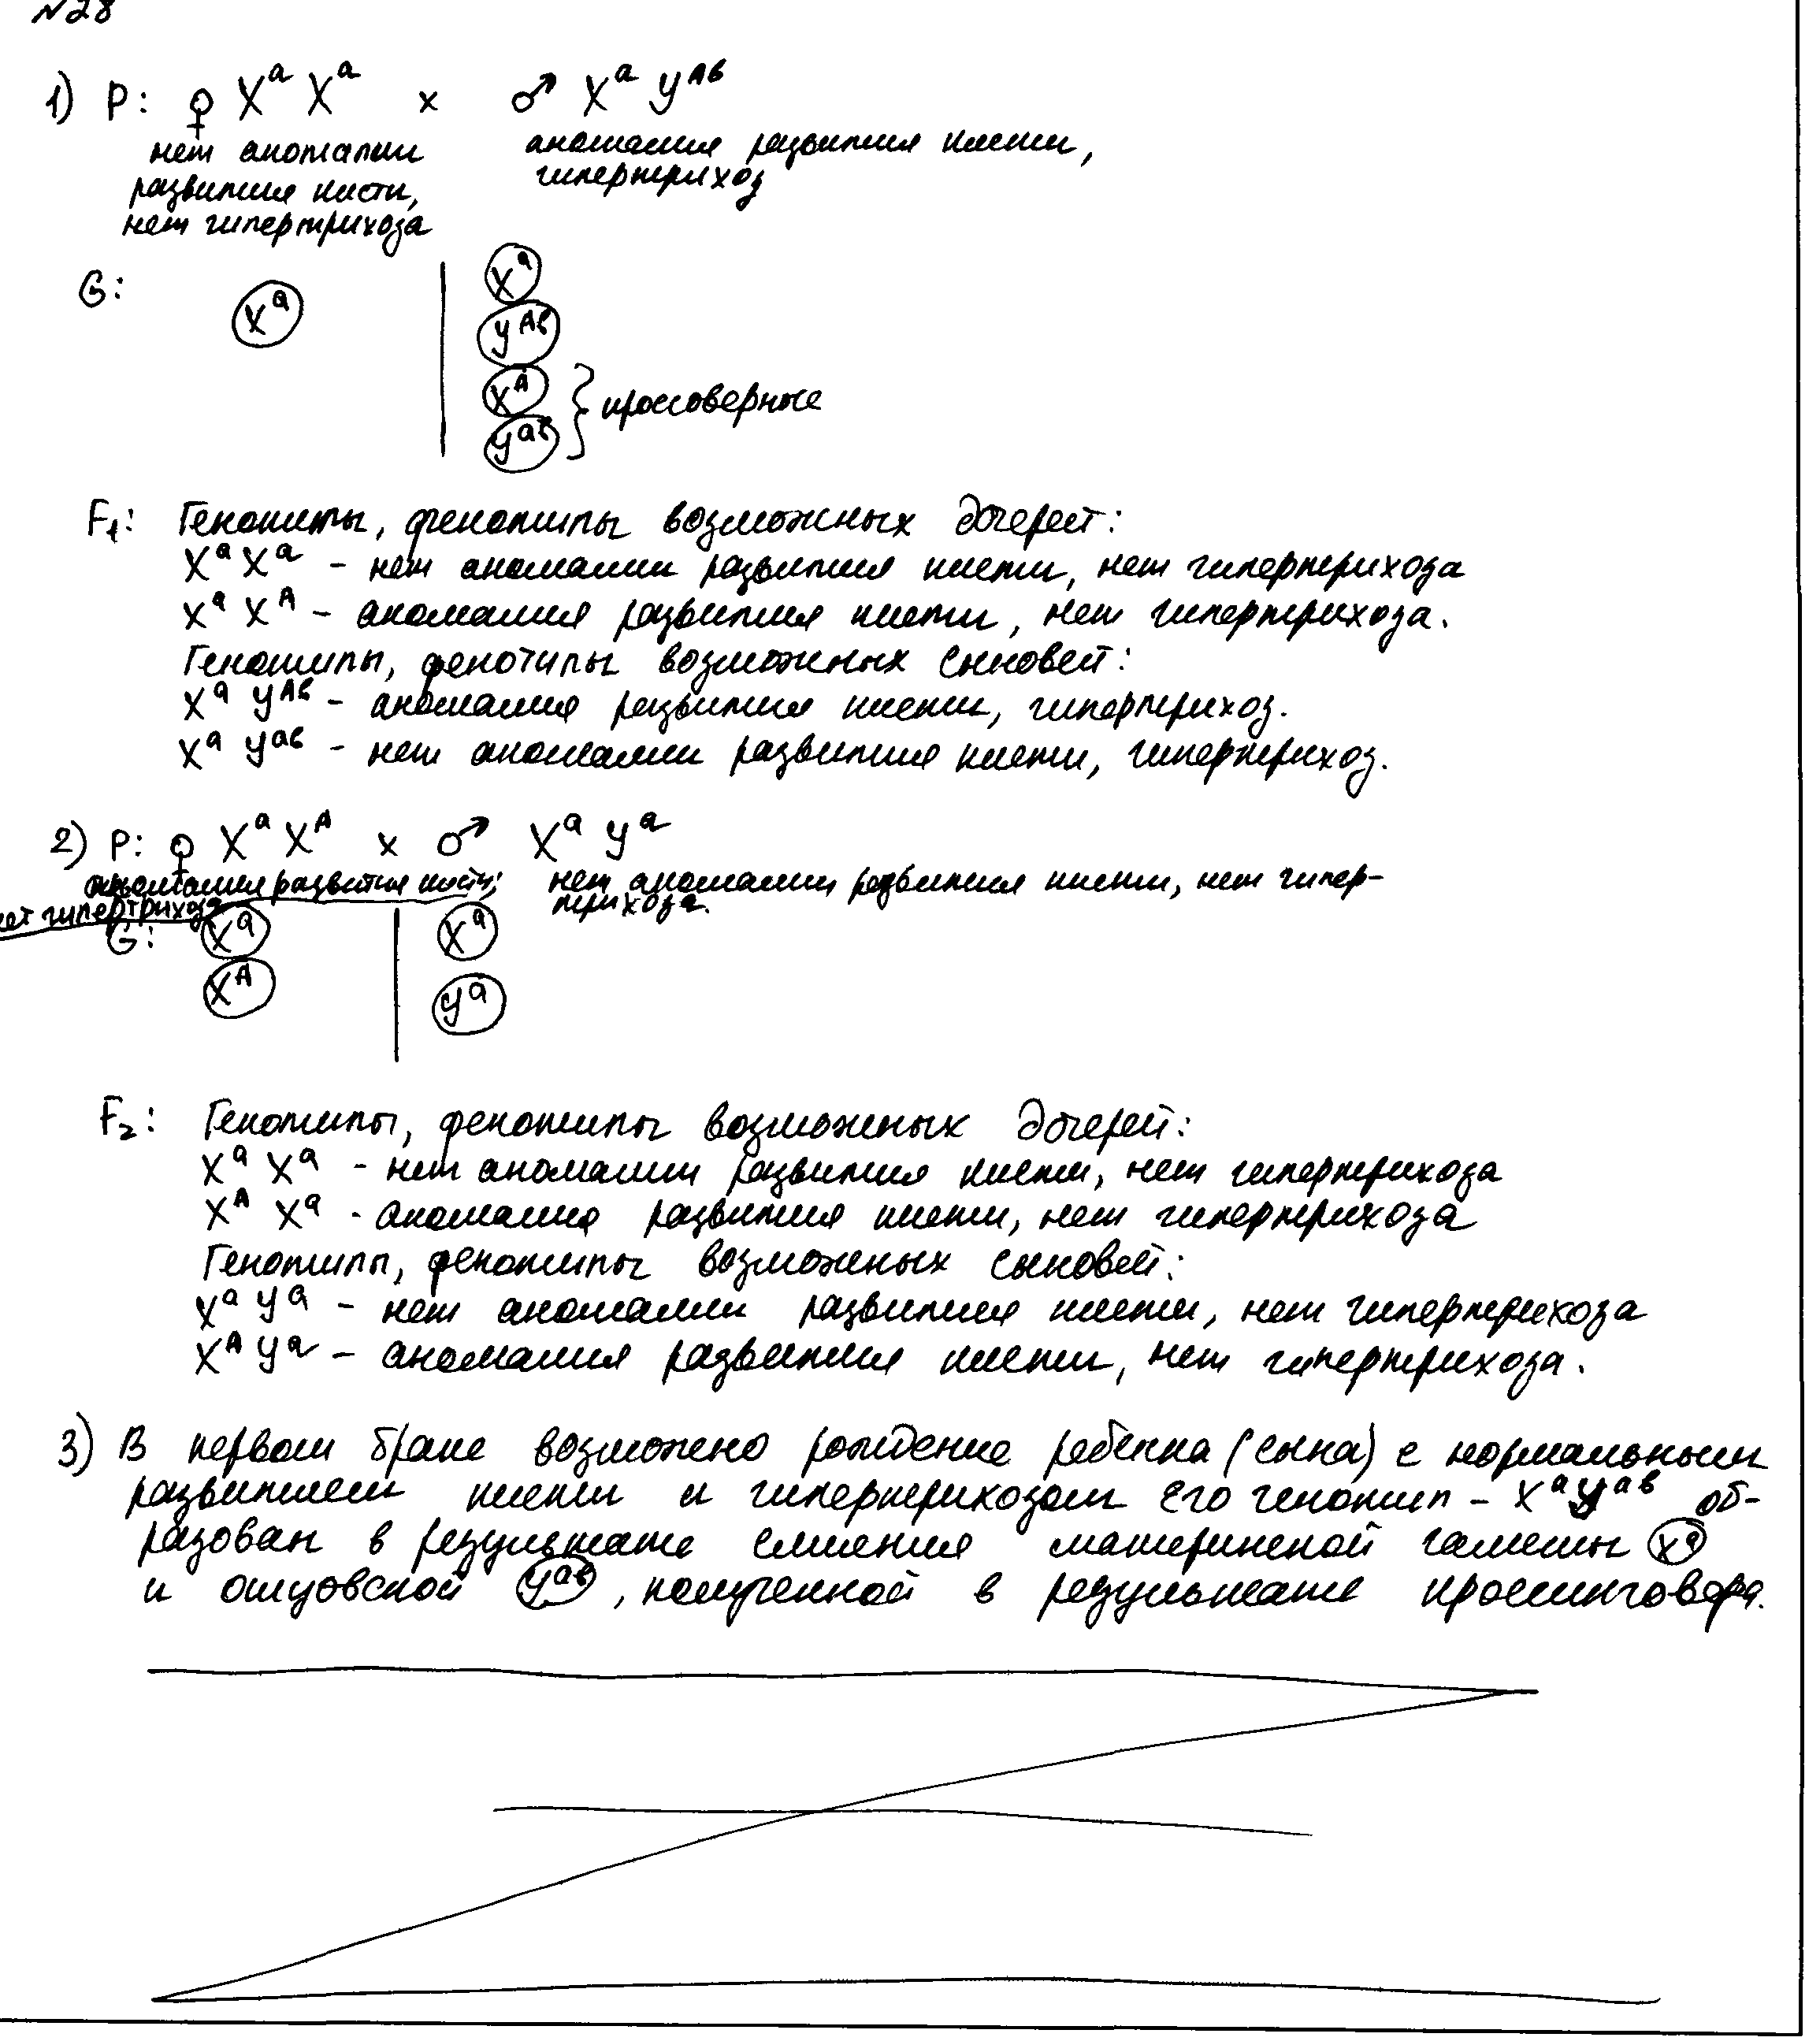 №28
1) P: ♀ Xᵃ Xᵃ × ♂ Xᵃ Yᴬᵇ
нет аномалии
развития кисти,
нет гипертрихоза
аномалия развития кисти,
гипертрихоз
G:
Xᵃ
Xᵃ
Yᴬᵇ
Xᴬ
Yᵃᵇ
} кроссоверные
F₁: Генотипы, фенотипы возможных дочерей:
Xᵃ Xᵃ – нет аномалии развития кисти, нет гипертрихоза
Xᵃ Xᴬ – аномалия развития кисти, нет гипертрихоза.
Генотипы, фенотипы возможных сыновей:
Xᵃ Yᴬᵇ – аномалия развития кисти, гипертрихоз.
Xᵃ Yᵃᵇ – нет аномалии развития кисти, гипертрихоз.
2) P: ♀ Xᵃ Xᴬ × ♂ Xᵃ Yᵃ
аномалия развития кисти,
нет гипертрихоза
нет аномалии развития кисти, нет гипер-
трихоза.
G:
Xᵃ
Xᴬ
Xᵃ
Yᵃ
F₂: Генотипы, фенотипы возможных дочерей:
Xᵃ Xᵃ - нет аномалии развития кисти, нет гипертрихоза
Xᴬ Xᵃ - аномалия развития кисти, нет гипертрихоза
Генотипы, фенотипы возможных сыновей:
Xᵃ Yᵃ – нет аномалии развития кисти, нет гипертрихоза
Xᴬ Yᵃ – аномалия развития кисти, нет гипертрихоза.
3) В первом браке возможно рождение ребенка (сына) с нормальным
развитием кисти и гипертрихозом Его генотип – XᵃYᵃᵇ об-
разован в результате слияния материнской гаметы Xᵃ
и отцовской Yᵃᵇ, полученной в результате кроссинговера.